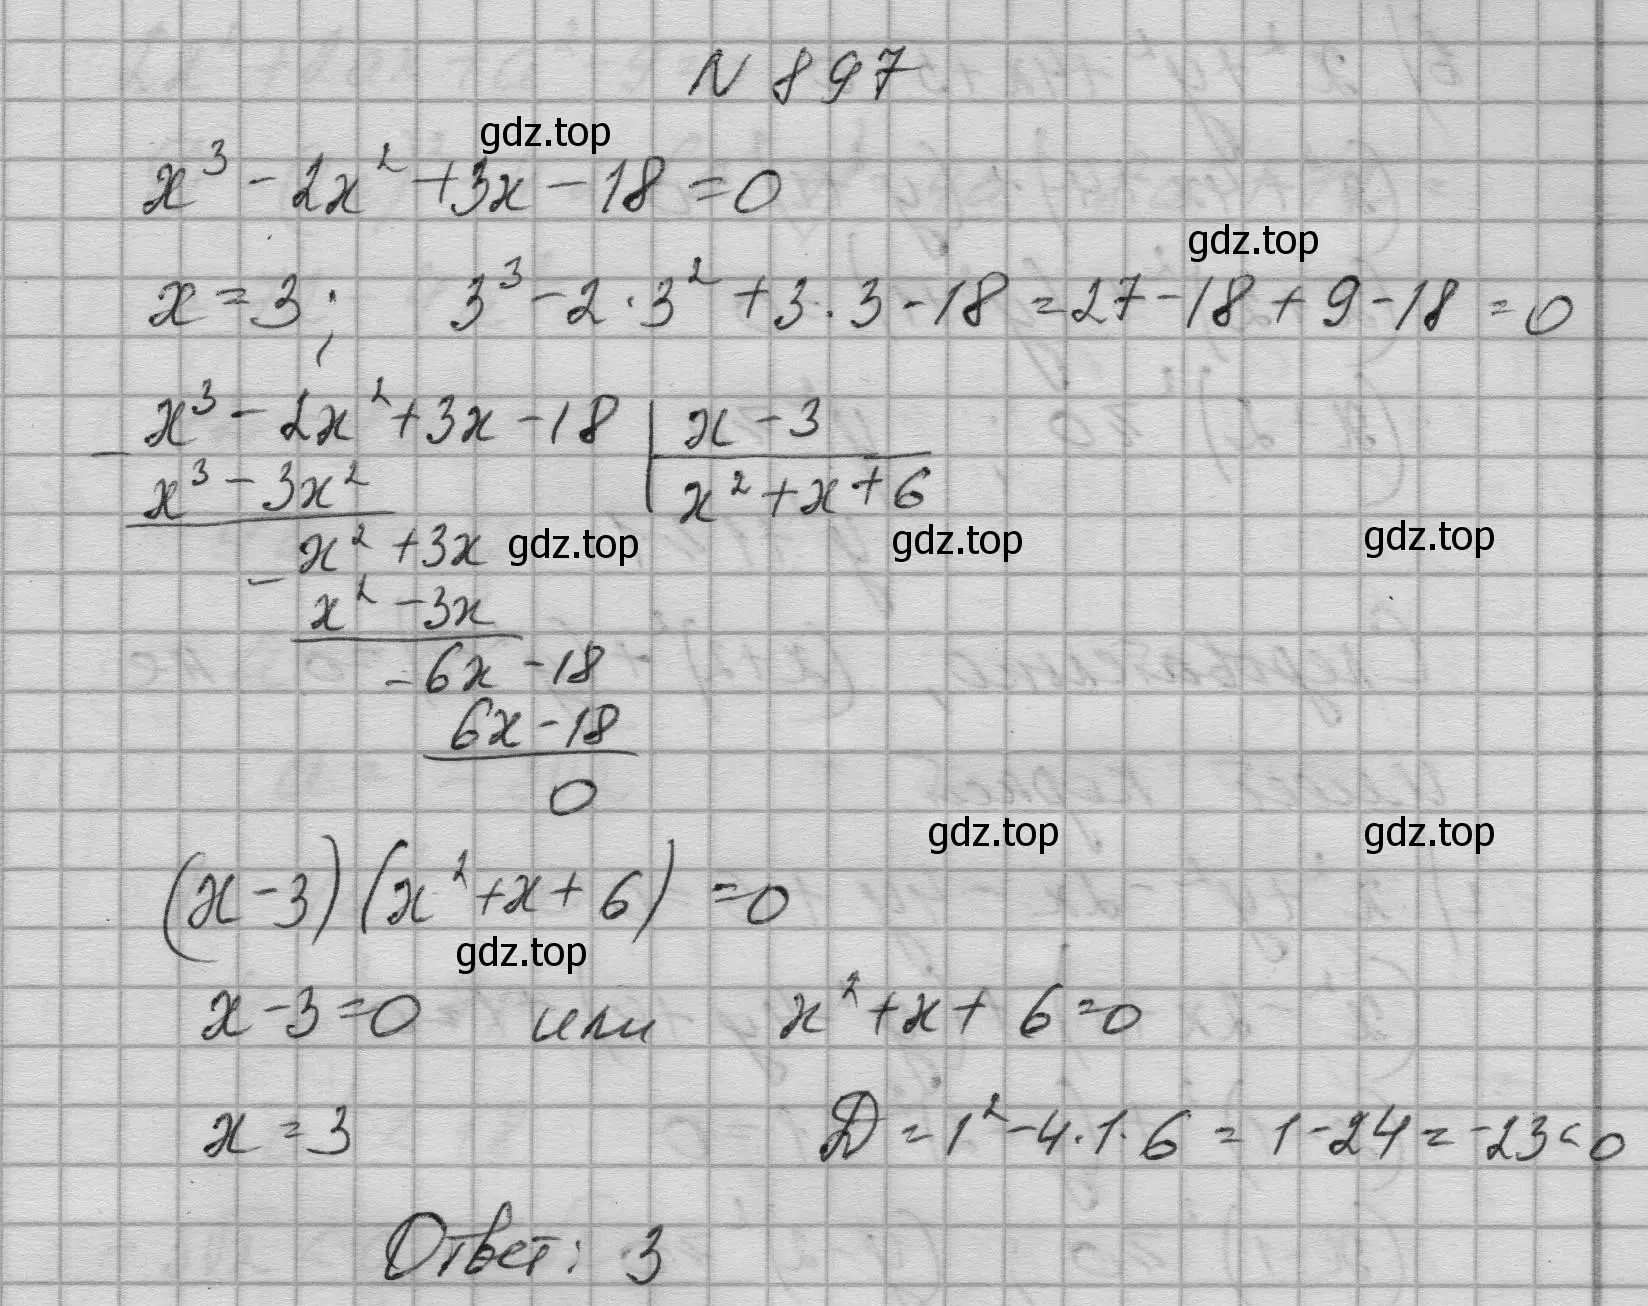 N 897
gdz.top
x³ - 2x² + 3x - 18 = 0
gdz.top
x = 3; 3³ - 2 · 3² + 3 · 3 - 18 = 27 - 18 + 9 - 18 = 0
- x³ - 2x² + 3x - 18 | x - 3
x³ - 3x² | x² + x + 6
- x² + 3x gdz.top gdz.top gdz.top
x² - 3x
- 6x - 18
6x - 18
0
gdz.top gdz.top
(x - 3)(x² + x + 6) = 0
gdz.top
x - 3 = 0 или x² + x + 6 = 0
x = 3 D = 1² - 4 · 1 · 6 = 1 - 24 = -23 < 0
Ответ: 3